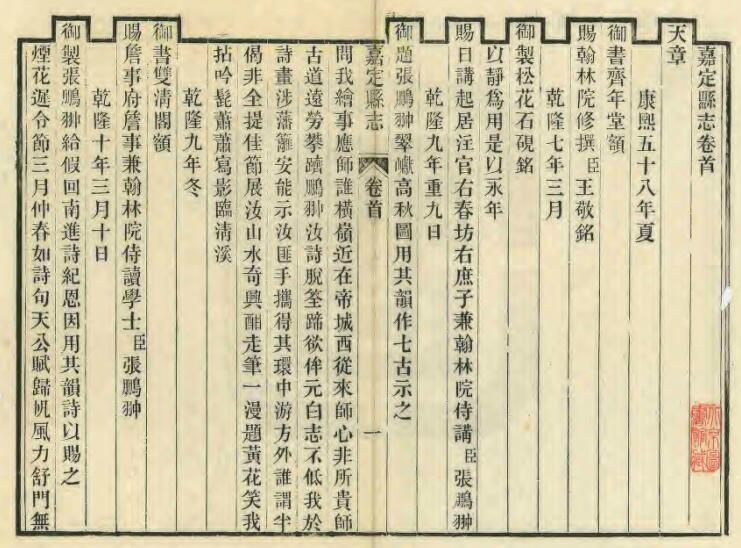 嘉定縣志卷首
天章
康熙五十八年夏
御書齊年堂額
賜翰林院修撰臣王敬銘
乾隆七年三月
御製松花石硯銘
以靜爲用是以永年
賜日講起居注官右春坊右庶子兼翰林院侍講臣張鵬翀
乾隆九年重九日
御題張鵬翀翠巘高秋圖用其韻作七古示之
嘉定縣志 卷首 一
問我繪事應師誰橫嶺近在帝城西從來師心非所貴師
古道遠勞攀躋鵬翀汝詩脫筌蹄欲侔元白志不低我於
詩畫涉藩籬安能示汝匪手攜得其環中游方外誰謂半
偈非全提佳節展汝山水奇興酣走筆一漫題黃花笑我
拈吟髭蕭蕭寫影臨淸溪
乾隆九年冬
御書雙淸閣額
賜詹事府詹事兼翰林院侍讀學士臣張鵬翀
乾隆十年三月十日
御製張鵬翀給假回南進詩紀恩因用其韻詩以賜之
煙花遲令節三月仲春如詩句天公賦歸帆風力舒門無